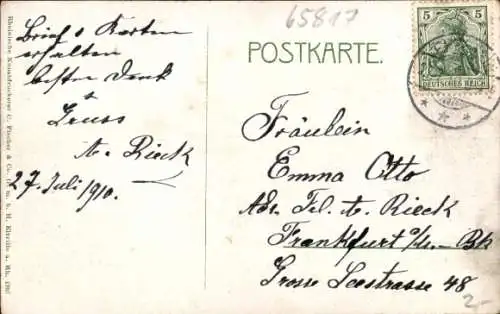 65817
Brief & Karten
erhalten
besten Dank
&
Gruss
A. Rieck
27. Juli /910.
POSTKARTE.
5 5
DEUTSCHES REICH
Fräulein
Emma Otto
Adr. Frl. A. Rieck
Frankfurt a/M.-Bk
Grosse Seestrasse 48
2.-
Rheinische Kunstdruckerei C. Fischer & Co., G. m. b. H., Eltville a. Rh.